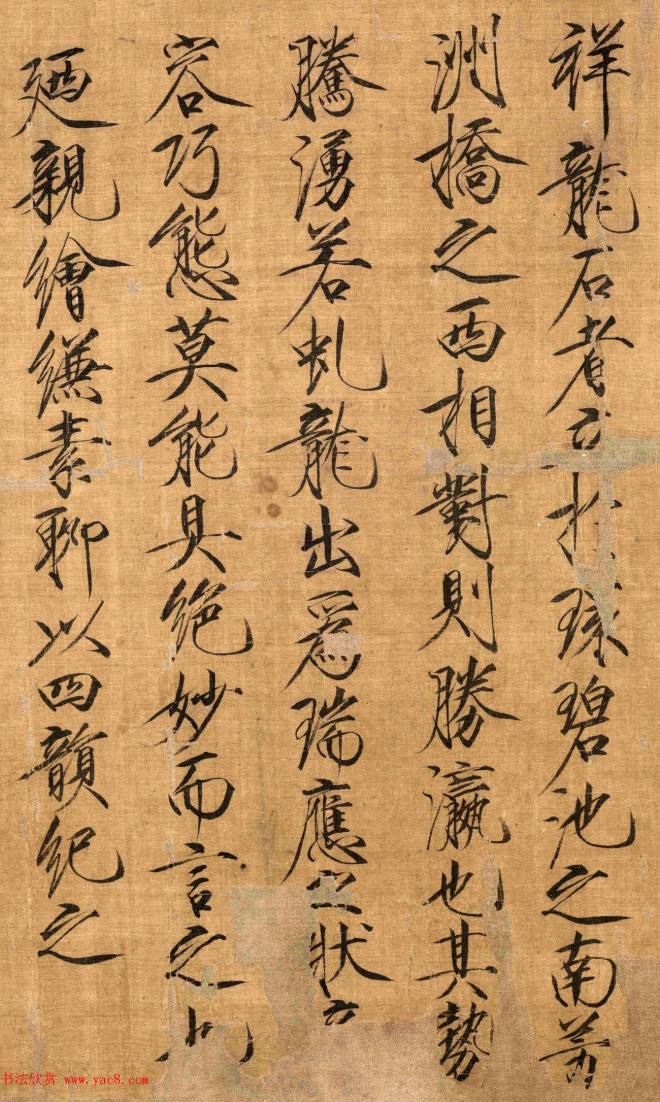 祥龍石者立於環碧池之南芳
洲橋之西相對則勝瀛也其勢
騰湧若虬龍出爲瑞應之狀奇
容巧態莫能具絕妙而言之也
廼親繪縑素聊以四韻紀之
书法欣赏 www.yac8.com